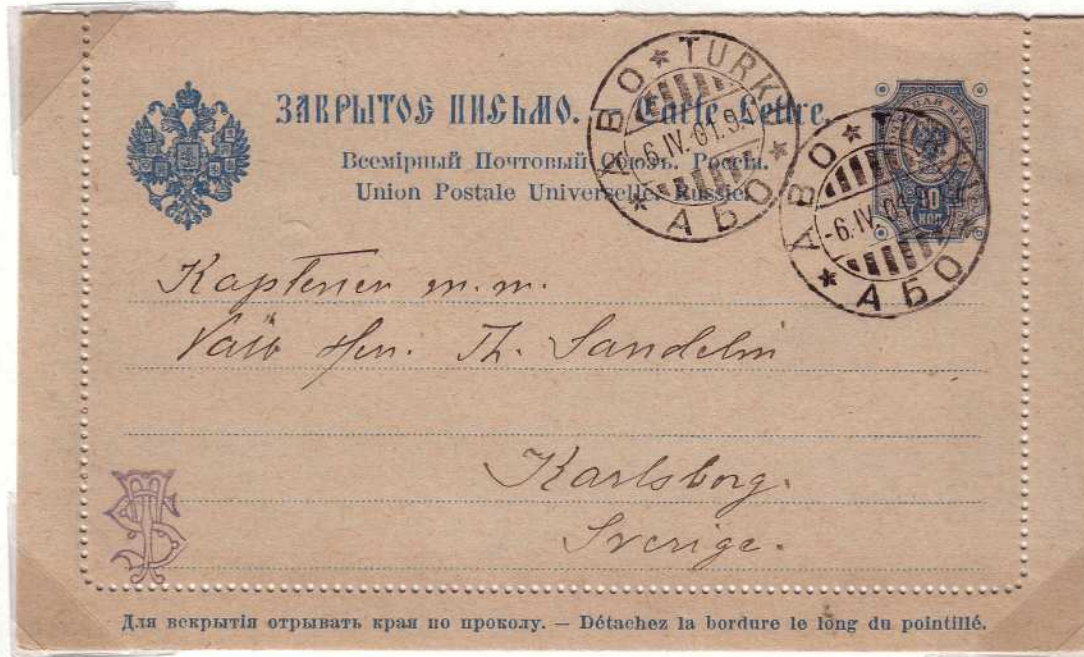 ЗАКРЫТОЕ ПИСЬМО. Carte-Lettre.
Всемірный Почтовый Союзъ. Россія.
Union Postale Universelle. Russie.
ABO * TURKU * АБО *
-6.IV.01.9
ABO * TURKU * АБО *
-6.IV.01.
10
КОП.
Kaptenen m.m.
Herr. Th. Sandelin
Karlsborg.
Sverige.
TS
Для вскрытія отрывать края по проколу. — Détachez la bordure le long du pointillé.